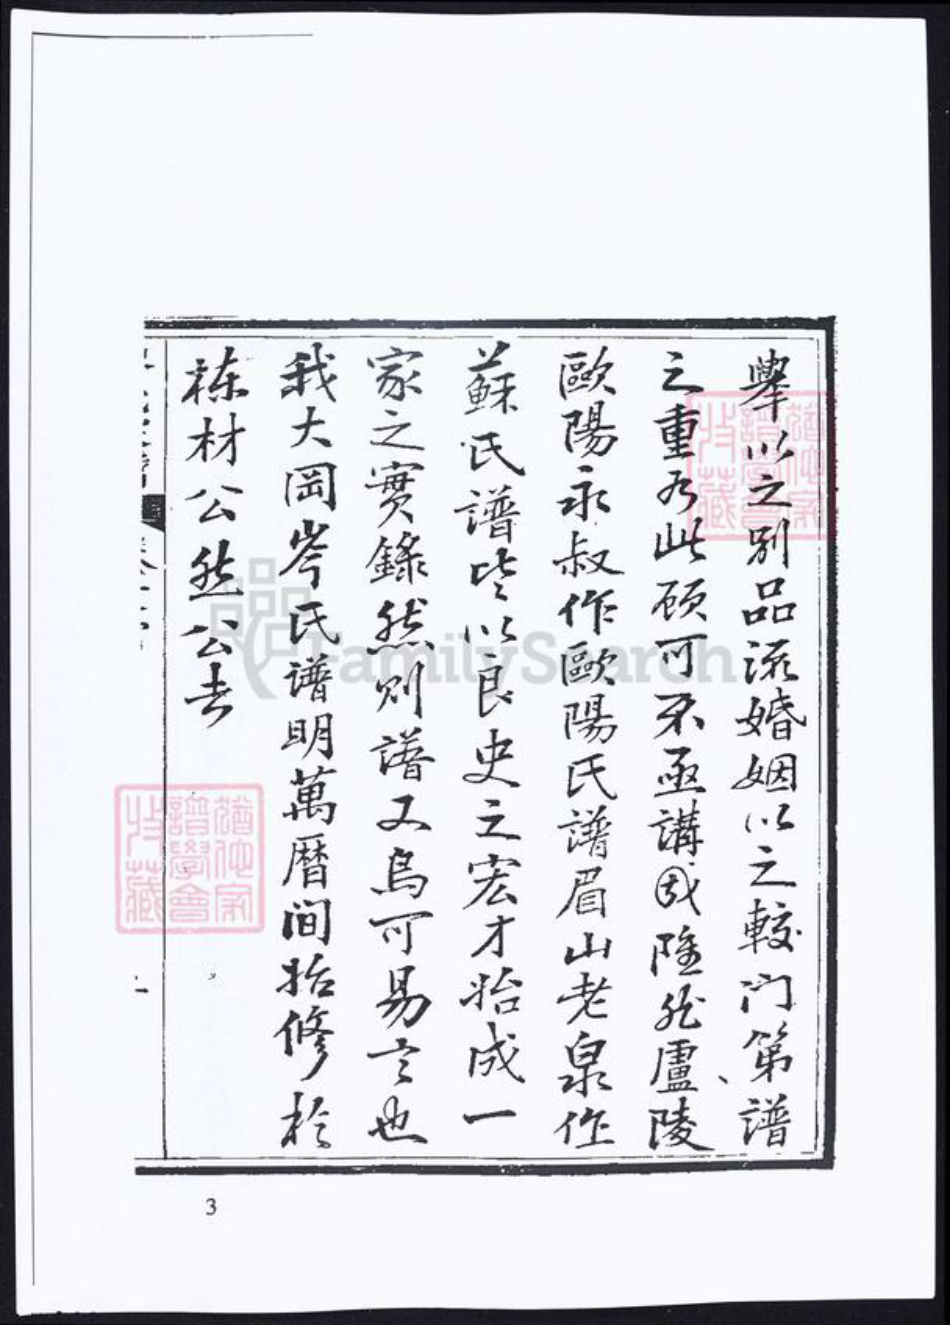 舉以之別品流婚姻以之較門第譜
之重為此顧可不亟講哉雖然盧陵
歐陽永叔作歐陽氏譜眉山老泉作
蘇氏譜皆以良史之宏才始成一
家之實錄然則譜又烏可易言也
我大岡岑氏譜明萬曆间始修於
棟材公然公去
3
FamilySearch